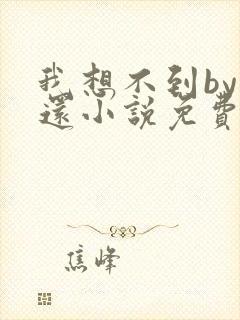 我想不到by
還小說免費
焦峰